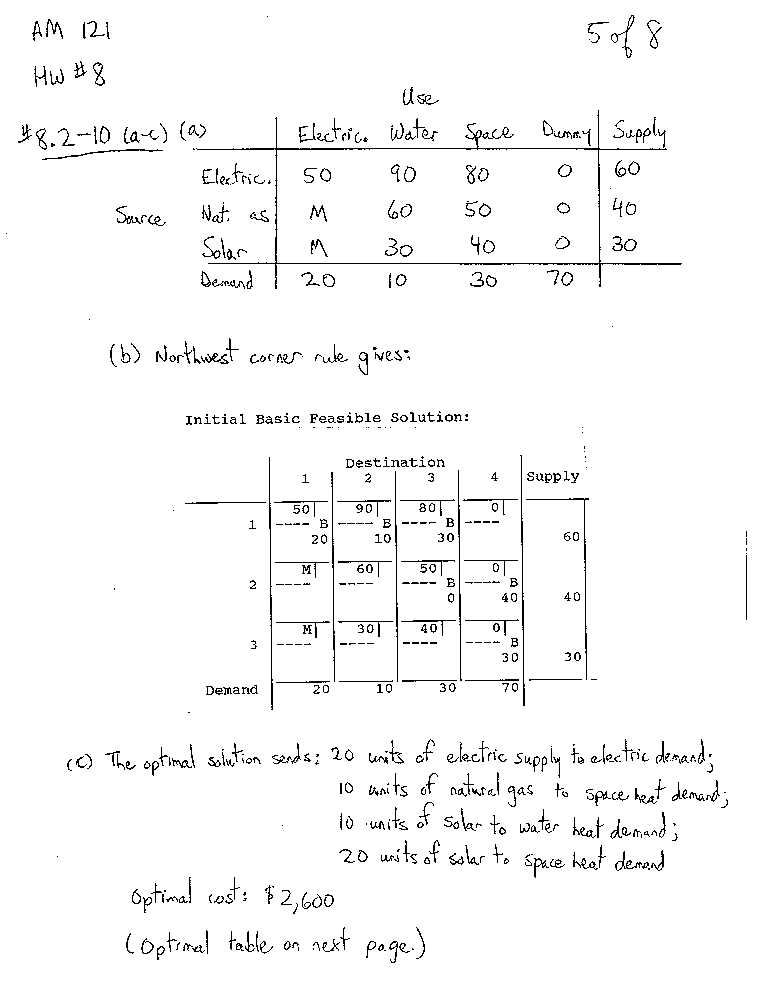 AM 121
5 of 8
HW #8
Use
#8.2-10 (a-c) (a) Electric. Water Space Dummy Supply
Electric. 50 90 80 0 60
Source Nat. as M 60 50 0 40
Solar M 30 40 0 30
Demand 20 10 30 70
(b) Northwest corner rule gives:
Initial Basic Feasible Solution:
Destination
1 2 3 4 Supply
50 90 80 0
1 ---- B ---- B ---- B ----
20 10 30 60
M 60 50 0
2 ---- ---- ---- B ---- B
0 40 40
M 30 40 0
3 ---- ---- ---- ---- B
30 30
Demand 20 10 30 70
(c) The optimal solution sends: 20 units of electric supply to electric demand;
10 units of natural gas to space heat demand;
10 units of solar to water heat demand;
20 units of solar to space heat demand
Optimal cost: $2,600
(Optimal table on next page.)